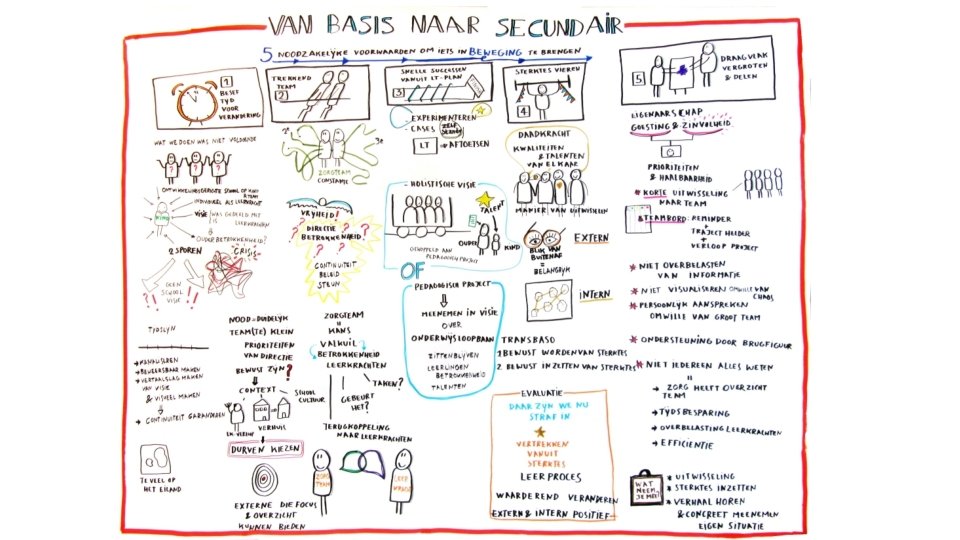 VAN BASIS NAAR SECUNDAIR
5 NOODZAKELIJKE VOORWAARDEN OM IETS IN BEWEGING TE BRENGEN
1
BESEF
TIJD
VOOR
VERANDERING
WAT WE DOEN WAS NIET VOLDOENDE
? ? ?
INDIVIDUEEL ALS LEERKRACHT
VISIE WAS GEDEELD MET
LEERKRACHTEN
OUDERBETROKKENHEID!
2 SPOREN
CRISIS
GEEN
SCHOOL
VISIE
!! !!
TIJDSLIJN
→ KANALISEREN
→ BEHEERSBAAR MAKEN
→ VERTAALSLAG MAKEN
VAN VISIE
& VISUEEL MAKEN
→ CONTINUITEIT GARANDEREN
TEVEEL OP
HET EILAND
TREKKEND
TEAM
2
2e
3e
ZORGTEAM
CONSTANTE
VRIJHEID!
DIRECTIE
BETROKKENHEID!
? ? ? ?
CONTINUITEIT
BELEID
STEUN
NOOD = DUIDELIJK
TEAM(TE) KLEIN
PRIORITEITEN
VAN DIRECTIE
BEWUST ZIJN?
CONTEXT
SCHOOL
CULTUUR
VERHUIS
DURVEN KIEZEN
EXTERNE DIE FOCUS
& OVERZICHT
KUNNEN BIEDEN
ZORGTEAM
=
KANS
VALKUIL
BETROKKENHEID
LEERKRACHTEN
TAKEN?
GEBEURT
HET?
TERUGKOPPELING
NAAR LEERKRACHTEN
ZORG
TEAM
LEER
KRACHT
SNELLE SUCCESSEN
VANUIT LT-PLAN
3
EXPERIMENTEREN
CASES
ZELF
STERKTE
LT → AFTOETSEN
HOLISTISCHE VISIE
TALENT
OUDER
KIND
GEKOPPELD AAN
PEDAGOGISCH PROJECT
OF
PEDAGOGISCH PROJECT
MEENEMEN IN VISIE
OVER
ONDERWIJSLOOPBAAN
ZITTENBLIJVEN
LEERLINGEN
BETROKKENHEID
TALENTEN
STERKTES VIEREN
4
DAADKRACHT
KWALITEITEN
& TALENTEN
VAN ELKAAR
MANIER VAN UITWISSELEN
BLIK VAN
BUITENAF
=
BELANGRIJK
EXTERN
INTERN
TRANSBASO
1 BEWUST WORDEN VAN STERKTES
2 BEWUST INZETTEN VAN STERKTES
EVALUATIE
DAAR ZIJN WE NU
STRAF IN
VERTREKKEN
VANUIT
STERKTES
LEERPROCES
WAARDEREND VERANDEREN
EXTERN & INTERN POSITIEF
5
DRAAGVLAK
VERGROTEN
& DELEN
EIGENAARSCHAP
GOESTING & ZINVOLHEID
PRIORITEITEN
& HAALBAARHEID
* KORTE UITWISSELING
NAAR TEAM
* TEAMBORD: REMINDER
+
TRAJECT HELDER
+
VERLOOP PROJECT
* NIET OVERBELASTEN
VAN INFORMATIE
* NIET VISUALISEREN OMWILLE VAN
CHAOS
* PERSOONLIJK AANSPREKEN
OMWILLE VAN GROOT TEAM
* ONDERSTEUNING DOOR BRUGFIGUUR
* NIET IEDEREEN ALLES WETEN
=
→ ZORG HEEFT OVERZICHT
TEAM
→ TIJDSBESPARING
→ OVERBELASTING LEERKRACHTEN
→ EFFICIENTIE
WAT
NEEM
JE MEE?
* UITWISSELING
* STERKTES INZETTEN
* VERHAAL HOREN
& CONCREET MEENEMEN
EIGEN SITUATIE